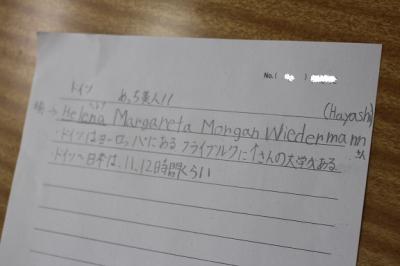 No.( )
ドイツ めっち美人!!
(Hayashi)
Helena Margareta Morgan Wiedermann さん
・ドイツはヨーロッパにある フライブルクに↑さんの大学がある
・ドイツ〜日本は、11,12時間くらい